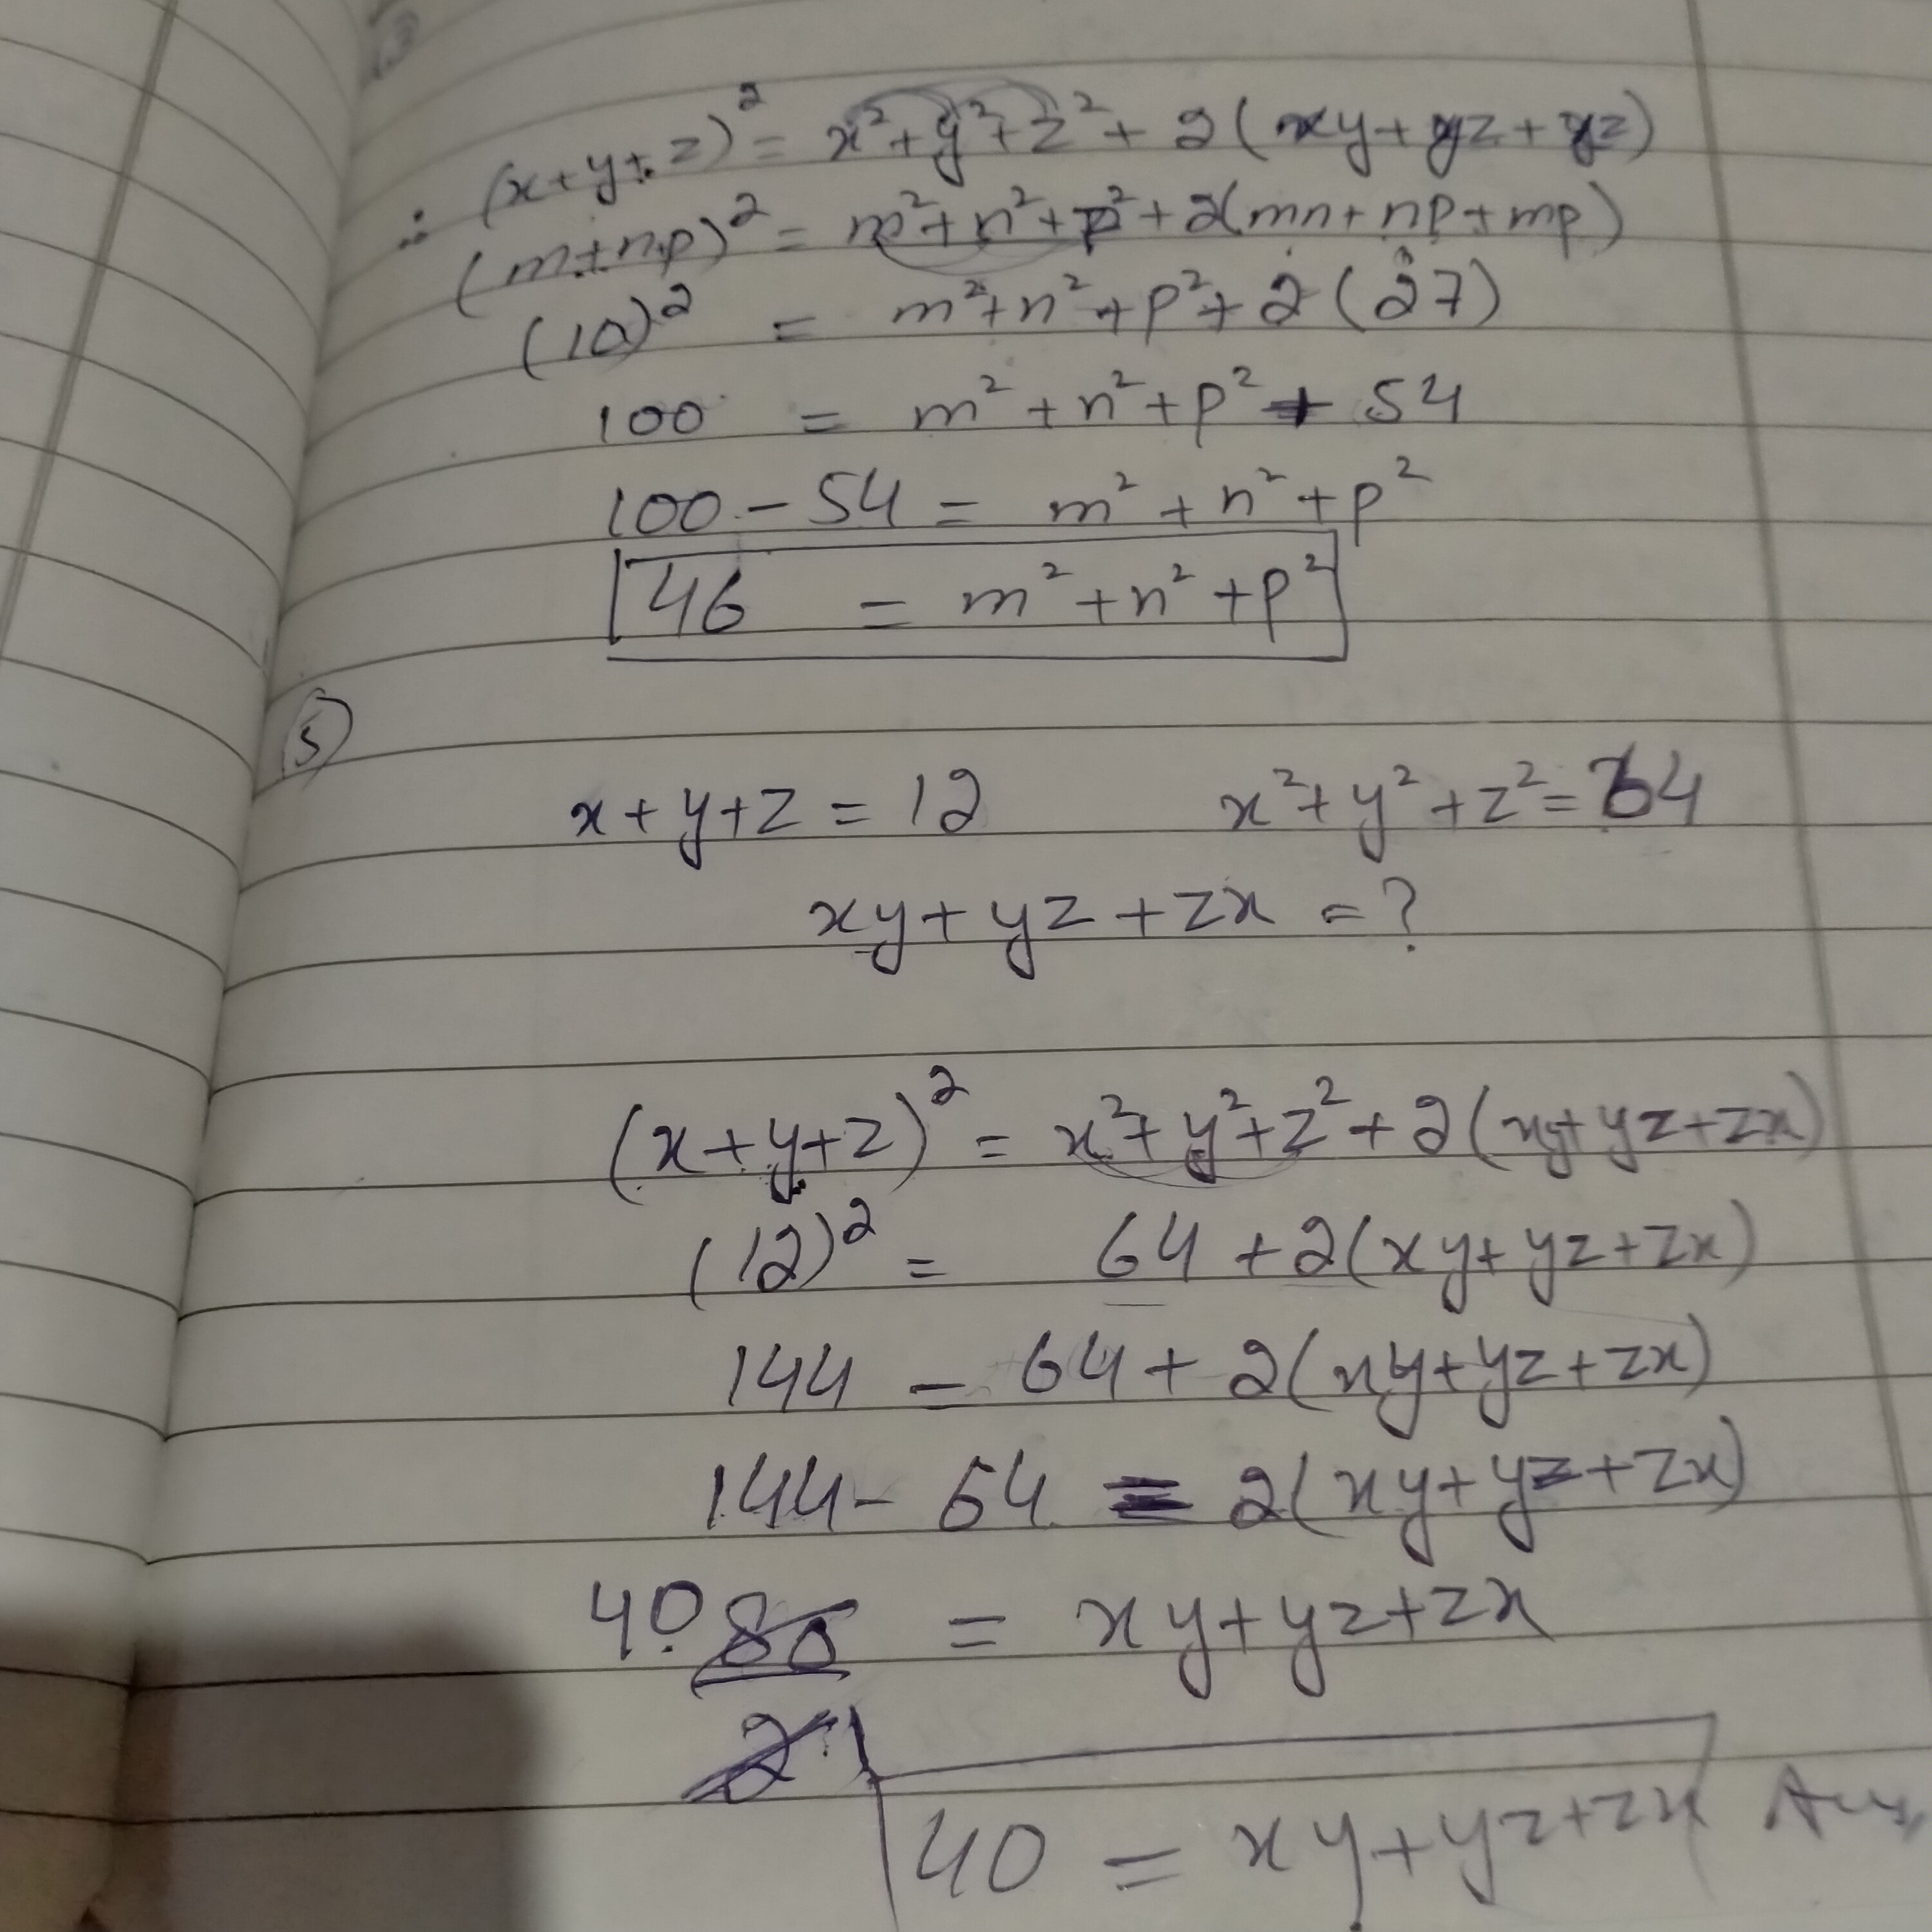 (x+y+z)² = x²+y²+z²+2(xy+yz+yz)
∴ (m+n.p)² = m²+n²+p²+2(mn+np+mp)
(10)² = m²+n²+p²+2(27)
100 = m²+n²+p²+54
100-54 = m²+n²+p²
46 = m²+n²+p²
(5)
x+y+z=12 x²+y²+z²=64
xy+yz+zx=?
(x+y+z)² = x²+y²+z²+2(xy+yz+zx)
(12)² = 64+2(xy+yz+zx)
144 = 64+2(xy+yz+zx)
144-64 = 2(xy+yz+zx)
40 80 = xy+yz+zx
2 1
40 = xy+yz+zx Ans